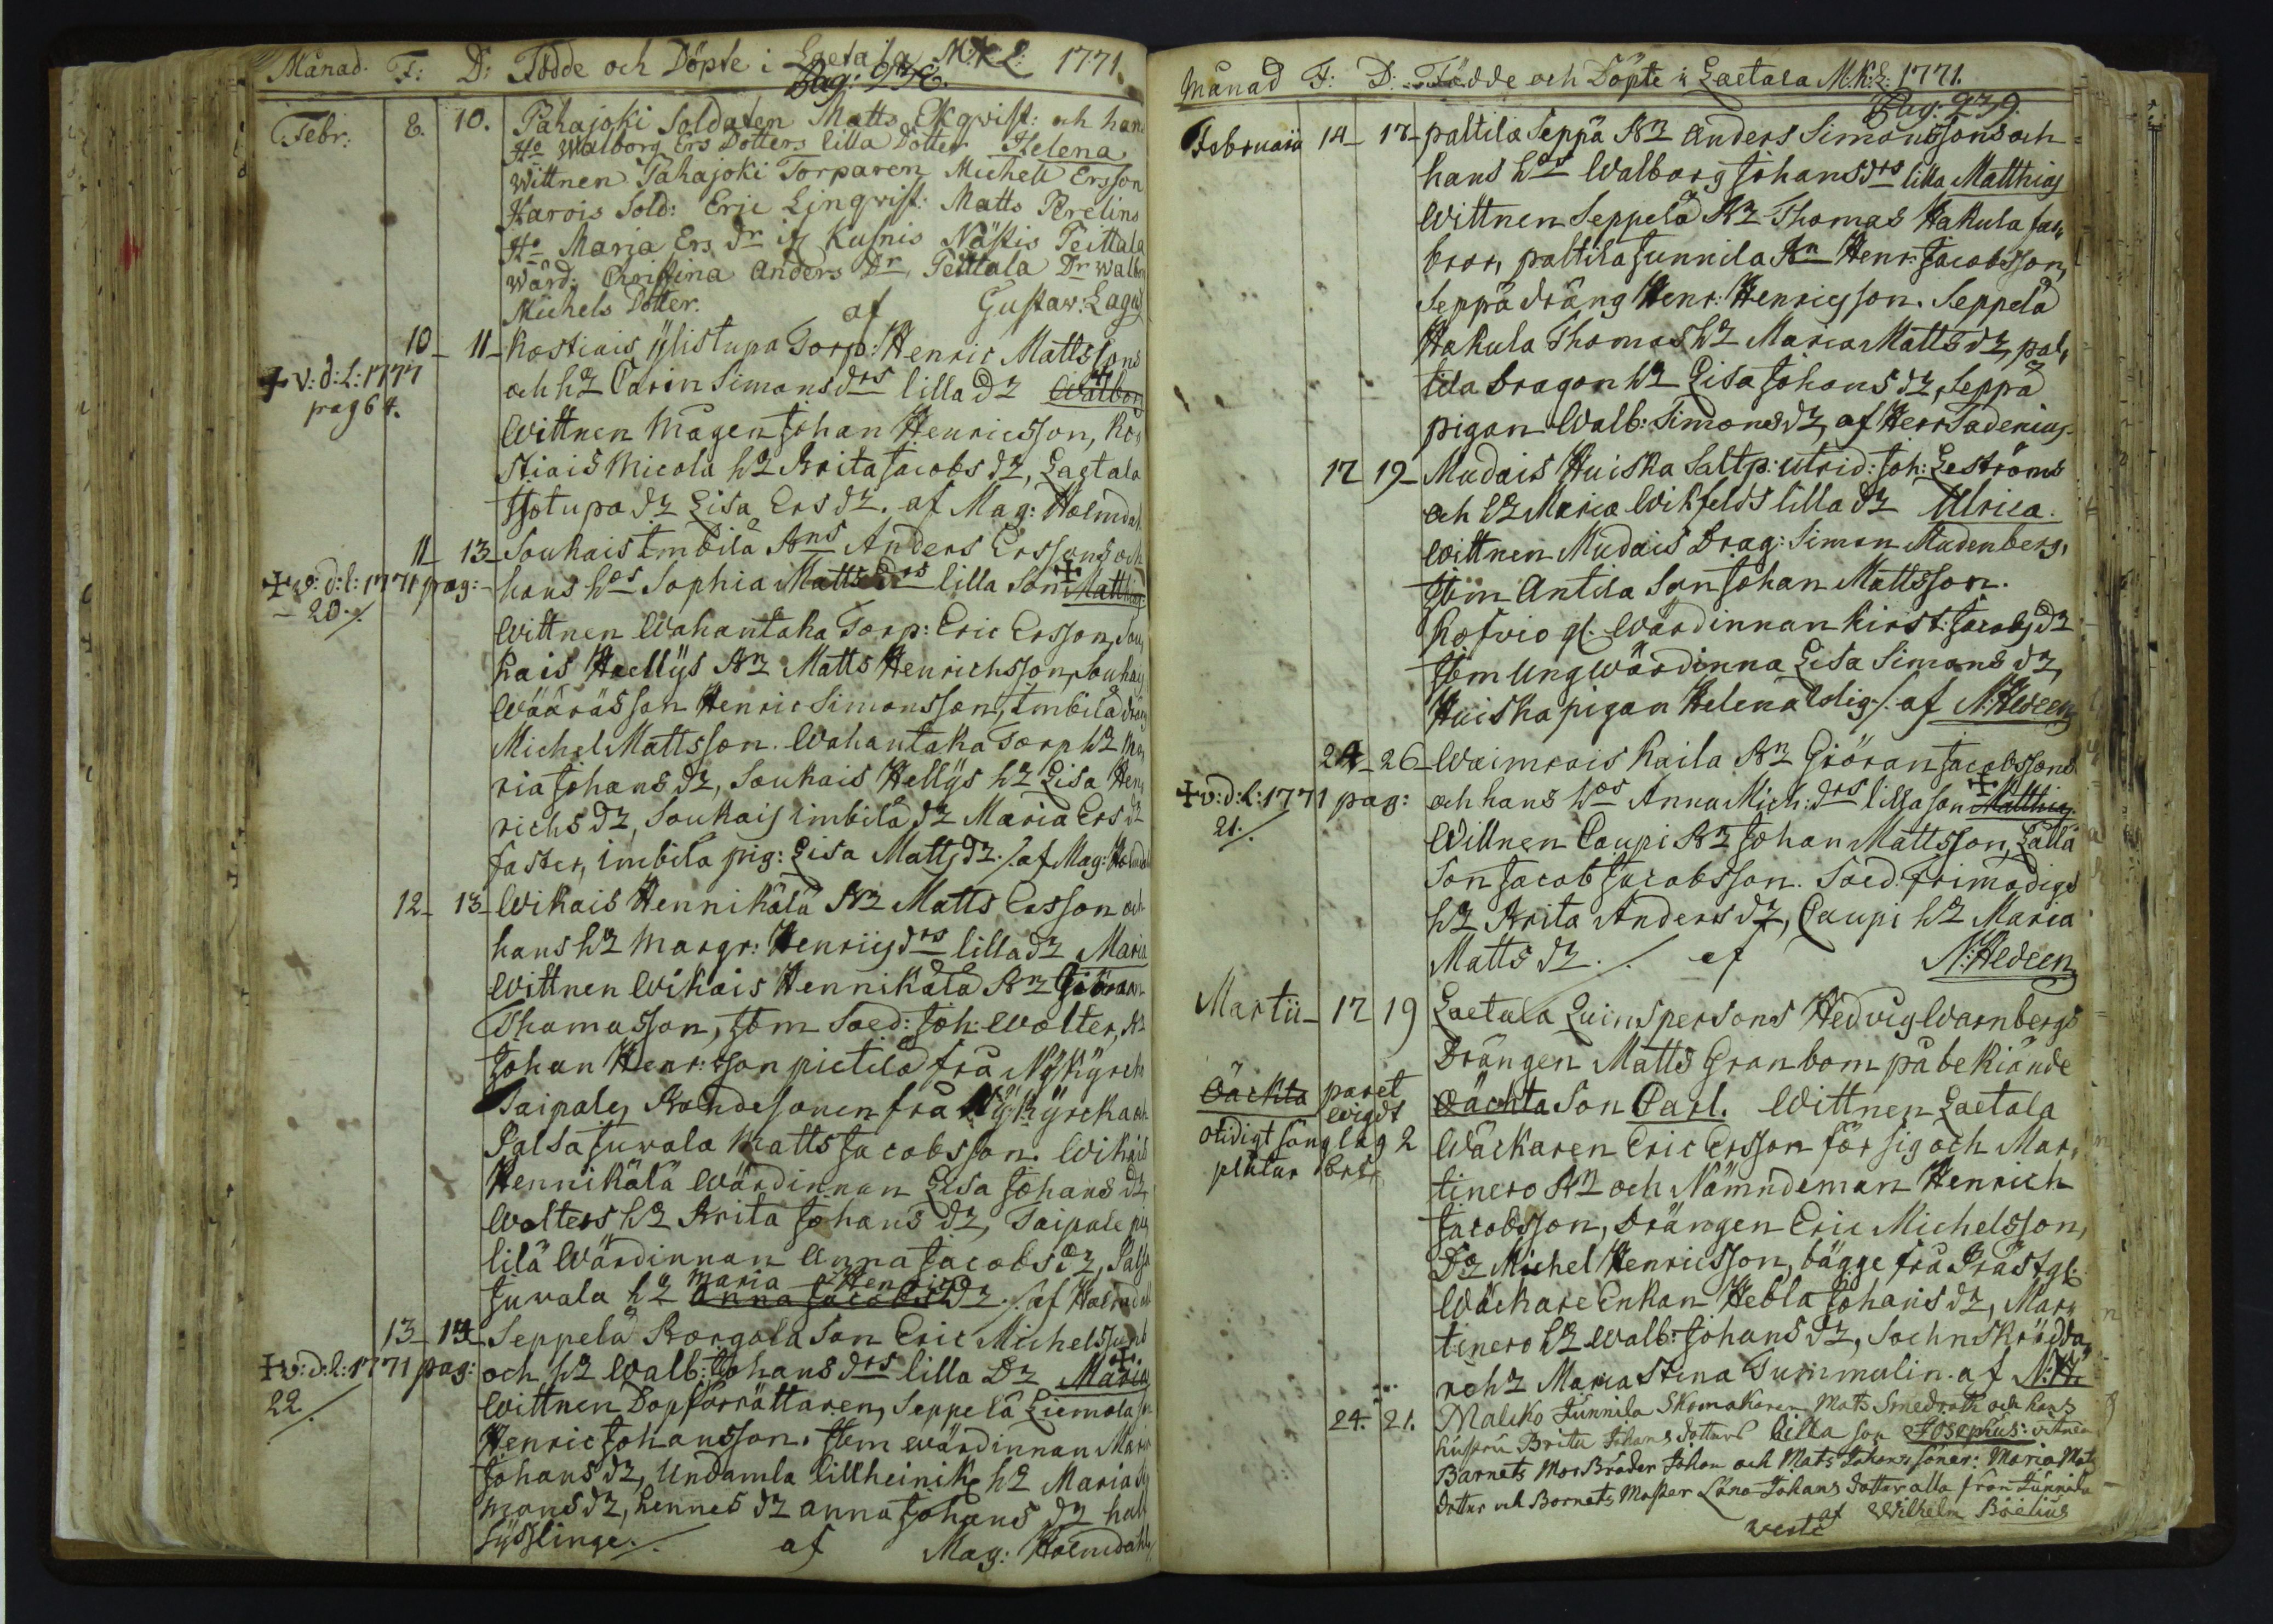 Månad. F: D: Födde och Döpte i Laetala M:K:L: 1771.
Pag: 938.
Febr: 8. 10. Pahajoki Soldaten Matts Ekqvist: och hans
Ho Walborg Ers Dotters lilla Dotter Helena
Wittnen Pahajoki Torparen Michell Ersson
Harois Sold: Eric Linqvist: Matts Perelins
Ho Maria Ers Dr Nästis Peittala
Wärd: Christina Anders Dr, Peittala Dr Walbor
Michels Dotter. af Gustaw: Lagus
10 - 11 - Kostiais ÿlistupa Torp: Henric Mattssons
✝ v: d: L: 1777
pag 64.
och h2 Carin Simans drs lilla d2 Walborg
Wittnen Mågen Johan Henricsson, Ko
stiais Micola h2 Brita Jacobs d2, Laetala
Isotupa d2 Lisa Ers d2. af Mag: Holmdah
11 - 13 - Soukais Imbilä Bns Anders Erssons och
✝ v: d: l: 1771 pag:
- 20 ./.
hans hos Sophia Matts drs lilla Son ✝ Matthias
Wittnen Wahantaka Torp: Eric Ersson, Sou
kais Hellÿs B2 Matts Henrichsson, Soukais
Wääräs son Henric Simonsson, Imbilä dräng
Michel Mattsson. Wahantaka Torp h2 Ma
ria Johans d2, Soukais Hellÿs h2 Lisa Hen
richs d2, Soukais imbilä d2 Maria Ers d2
faster, imbilä pig: Lisa Matts d2 ./. af Mag: Holmdah
12 - 13 - Wikais Hennikälä B2 Matts Ersson och
hans h2 Margr: Henrics drs lilla d2 Maria
Wittnen Wikais Hennikälä B2 Giöran
Thomasson, Item Soed: Joh: Wolter, B2
Johan Henr:sson pietilä frå Nÿkÿrcko
Taipale, Bondesonen frå Nÿkÿrcka och
Palsa Juvala Matts Jacobsson. Wikais
Hennikälä Wärdinnan Lisa Johans d2
Wolters h2 Brita Johans d2, Taipale pie
tilä Wärdinnan Anna Jacobs d2, Palsa
Maria Henrics
Juvala h2 Anna Jacobs d2 ./. af Holmdah
13 - 14 - Seppelä Borgala Son Eric Michelssons
✝ v: d: l: 1771 pag:
22 ./.
och h2 Walb: Johans drs lilla D2 ✝ Maria
Wittnen Dopförrättaren, Seppelä Liemola
Henric Johansson. Item Wärdinnan Mar
Johans d2, Undamla lillheinik h2 Maria Si
mons d2, hennes d2 Anna Johans d2 half
sÿsslinge ./. af Mag: Holmdahl
Månad F: D: Födde och Döpte i Laetala M:K:L: 1771.
Pag: 939.
Februarii 14 - 17 - paltila Seppä B2 Anders Simonssons och
hans hos Walborg Johans drs lilla Matthias
Wittnen Seppelä B2 Thomas Hakula far
bror, paltila Junnila Bn Henr: Jacobsson,
Seppä dräng Henr: Henricsson. Seppelä
Hakula Thomas h2 Maria Matts d2, pal
tila Dragon h2 Lisa Johans d2, Seppä
pigan Walb: Simons d2, af Herr Tadenius
17 19 - Mudais Huiska Saltp: utrid: Joh: Leströms
och h2 Maria Wikfelds lilla d2 Ulrica.
Wittnen Mudais Drag: Simon Mudenberg,
Item Antila Son Johan Mattsson.
Kofvio gl. Wärdinnan Kirst: Jacobs d2
Item Ung Wärdinna Lisa Simons d2,
Huiska pigan Helena ledig ./. af N: Hedeen
24 - 26 - Waimrois Kaila B2 Giöran Jacobssons
✝ v: d: l: 1771 pag:
21 ./.
och hans hos Anna Mich: drs lilla son ✝ Matthias
Wittnen Caupi B2 Johan Mattsson, Lallå
Son Jacob Jacobsson. Soed: Frimodigs
h2 Brita Anders d2, Caupi h2 Maria
Matts d2 ./. af N: Hedeen
Martii - 17 19 Laetala Quinspersons Hedvig Warnbergs
Drängen Matts Granbom påbekiände
oäckta paret
wigdt
otidigt sänglag 2
plåtar
oächta Son Carl. Wittnen Laetala
Wäckaren Eric Ersson för sig och Mar
tinero B2 och Nämndeman Henrich
Jacobsson, Drängen Eric Michelsson,
D2 Michel Henricsson, bägge frå Prästg:
Wäckare Enkan Hebla Johans d2, Mar
tinero h2 Walb: Johans d2, Sochnskrädda
re h2 Maria Stina Tummulin. af N: H:
24. 21. Maliko Junnila Skomakaren Mats Smedroth och hans
hustru Brita Johans dotters lilla son Josephus: vitnen
Barnets Mor Broder Johan och Mats Johans söner: Maria Mats
dotter och Barnets Moster Lena Johans dotter alla från Junnila
af Wilhelm Böelius